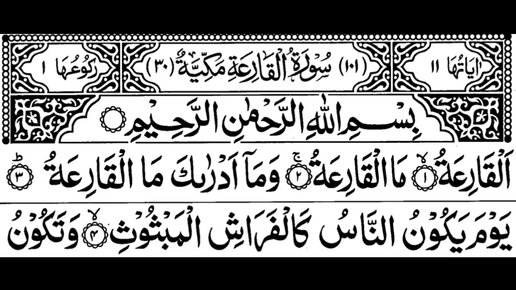 اٰيَاتُهَا ١١ (١٠١) سُوْرَةُ الْقَارِعَةِ مَكِّيَّةٌ (٣٠) رُكُوْعُهَا ١
بِسْمِ اللّٰهِ الرَّحْمٰنِ الرَّحِيْمِ
اَلْقَارِعَةُ ۙ﴿١﴾ مَا الْقَارِعَةُ ۚ﴿٢﴾ وَمَاۤ اَدْرٰىكَ مَا الْقَارِعَةُ ؕ﴿٣﴾
يَوْمَ يَكُوْنُ النَّاسُ كَالْفَرَاشِ الْمَبْثُوْثِ ۙ﴿٤﴾ وَتَكُوْنُ